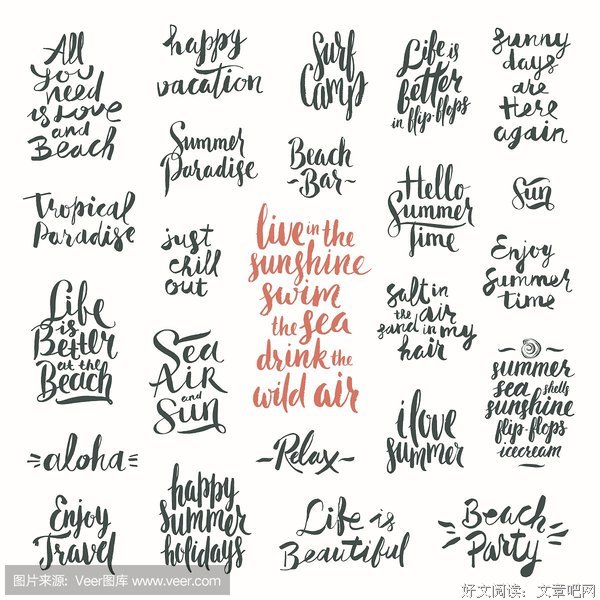 All
you
need
is Love
and
Beach
happy
vacation
Surf
Camp
Life is
better
in flip-flops
sunny
days
are
Here
again
Summer
Paradise
Beach
-Bar-
Hello
Summer
Time
Sun
Tropical
Paradise
just
chill
out
live in the
sunshine
swim
the sea
drink the
wild air
Enjoy
Summer
time
Life
is
Better
at the
Beach
Sea
Air
and
Sun
salt in
the air
sand in my
hair
summer
sea shells
sunshine
flip-flops
icecream
aloha
-Relax-
i love
summer
Enjoy
Travel
happy
summer
holidays
Life is
Beautiful
Beach
Party
图片来源：Veer图库 www.veer.com
好文阅读：文章吧网